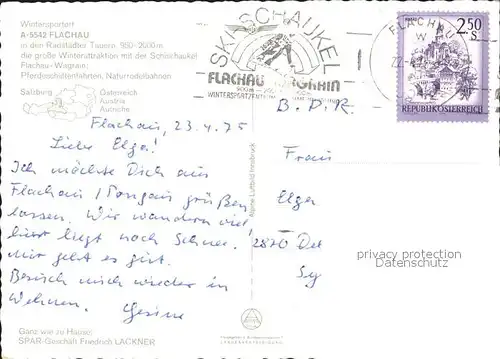 Wintersportort
A-5542 FLACHAU
in den Radstädter Tauern, 950-2000m
die große Winterattraktion mit der Schischaukel
Flachau-Wagrain;
Pferdeschlittenfahrten, Naturrodelbahnen
Salzburg
Österreich
Austria
Autriche
SKI-SCHAUKEL
FLACHAU WAGRAIN
WINTERSPORTZENTRUM
FLACHAU
2.50
S
REPUBLIK ÖSTERREICH
B. D. R.
Flachau, 23.4.75
Liebe Elga!
Ich möchte Dich aus
Flachau / Pongau grüßen
lassen. Wir wandern viel,
hier liegt noch Schnee.
Mir geht es gut.
Besuch mich wieder in
Gesine
Frau
Elga
2870 Del
Alpine Luftbild Innsbruck
privacy protection
Datenschutz
Ganz wie zu Hause:
SPAR-Geschäft Friedrich LACKNER